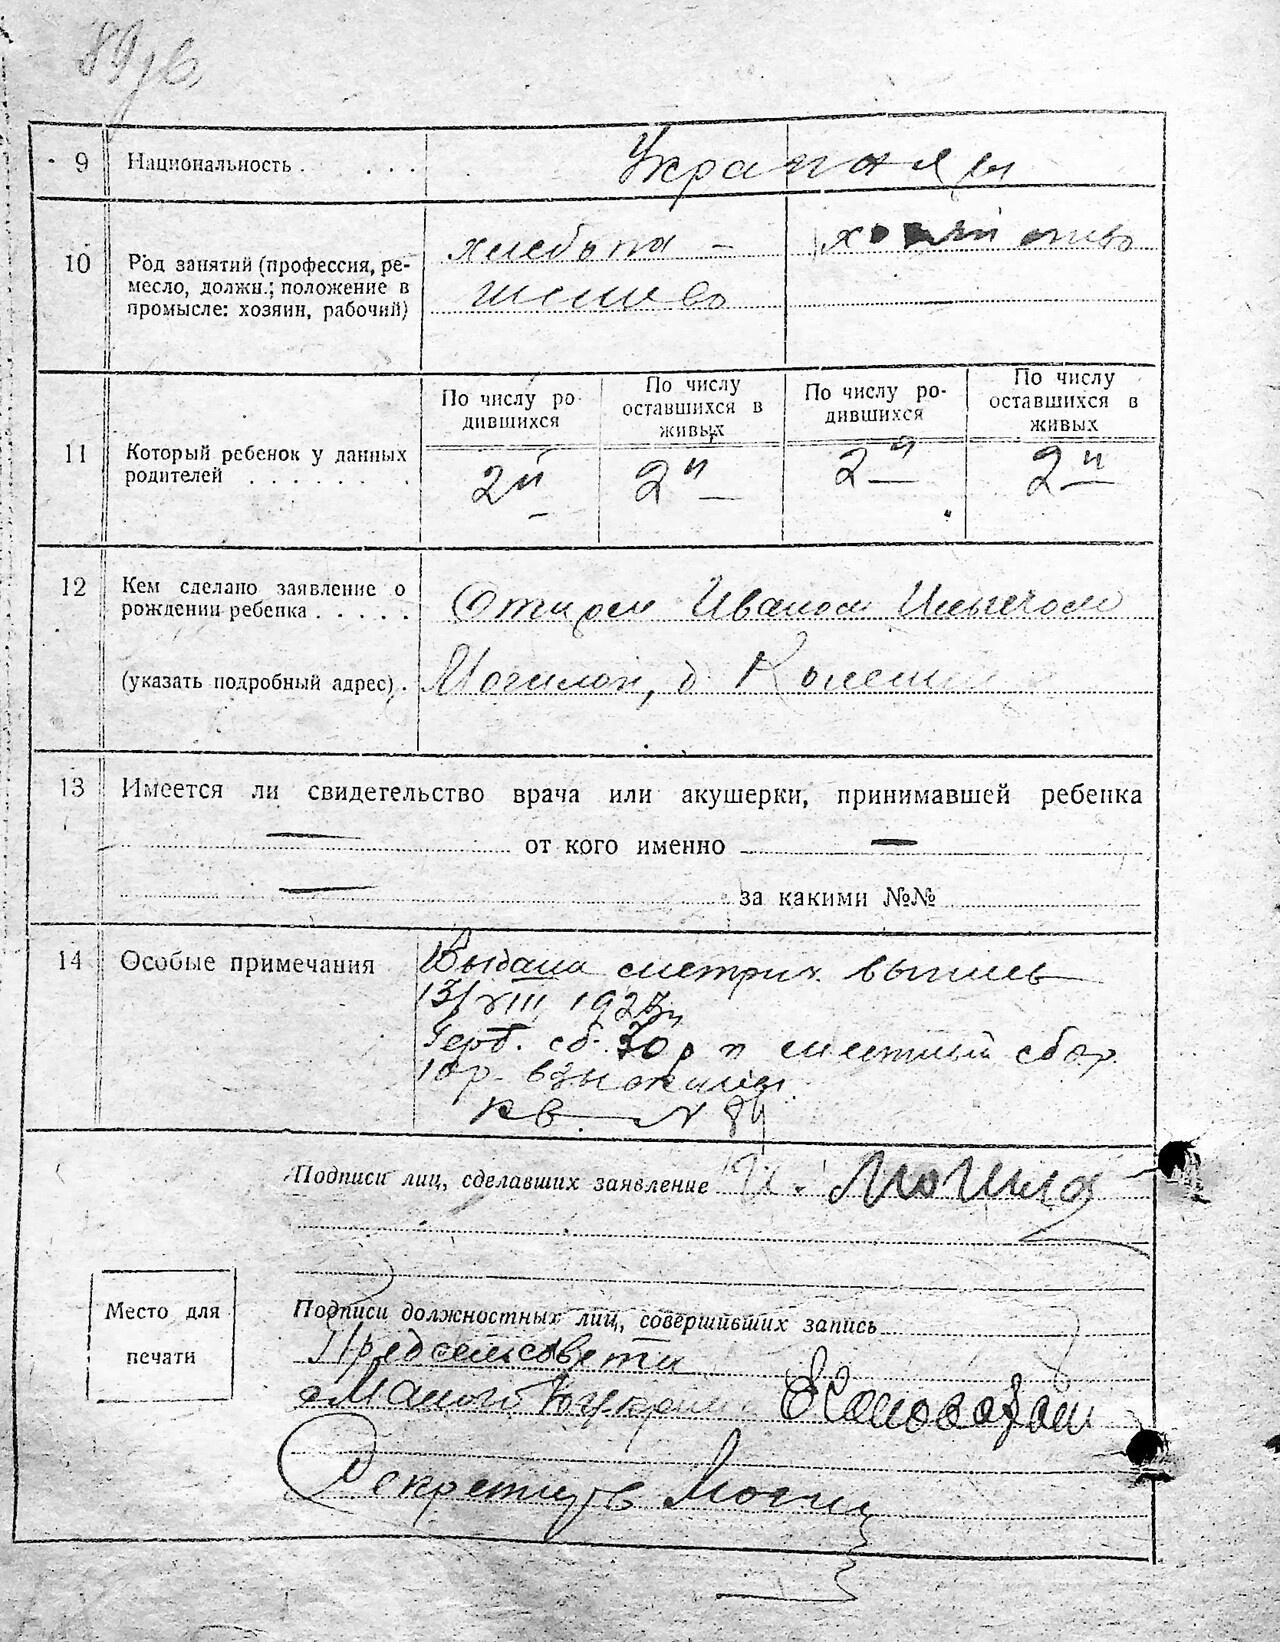 9 Национальность . . . . Украинцы
10 Род занятий (профессия, ре-
месло, должн.; положение в
промысле: хозяин, рабочий)
хлебопа-
шество
11 Который ребенок у данных
родителей . . . . . . .
По числу ро-
дившихся
По числу
оставшихся в
живых
По числу ро-
дившихся
По числу
оставшихся в
живых
2й 2й 2й 2й
12 Кем сделано заявление о
рождении ребенка . . . . .
Отцом Иваном Ильичом
(указать подробный адрес) .
д.
13 Имеется ли свидетельство врача или акушерки, принимавшей ребенка
— от кого именно —
— за какими №№
14 Особые примечания
Выдана метрич. выпись
13/VIII 1927г
Герб. сб. и местный сбор
10 р. взысканы
кв. N 84
Подписи лиц, сделавших заявление И. Могила
Место для
печати
Подписи должностных лиц, совершивших запись
Пред сельсовета
Секретарь